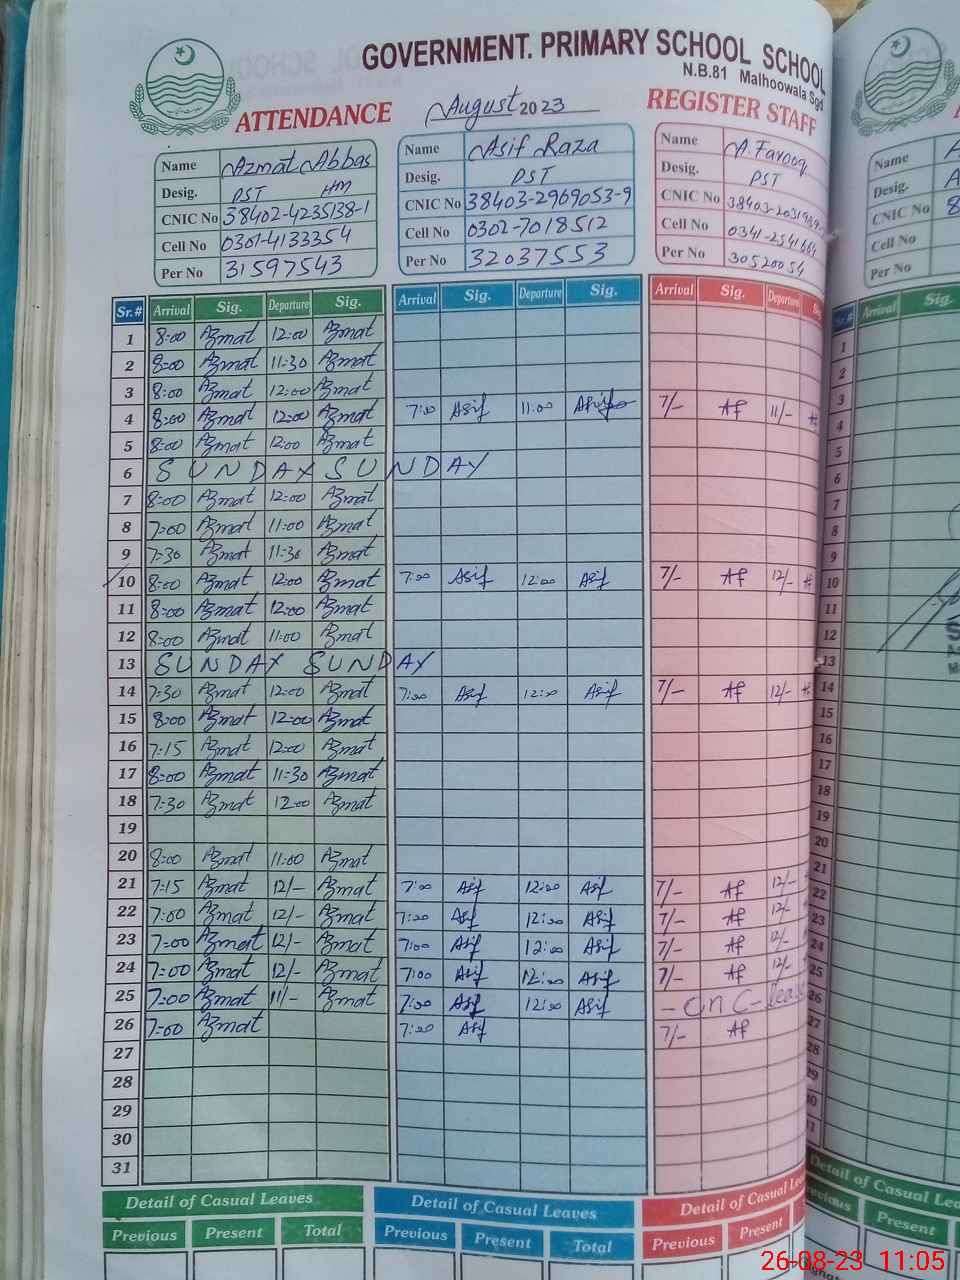 GOVERNMENT. PRIMARY SCHOOL SCHOOL
N.B.81 Malhoowala Sgd
ATTENDANCE August 2023 REGISTER STAFF
Name Azmat Abbas
Desig. PST HM
CNIC No 38402-4235138-1
Cell No 0301-4133354
Per No 31597543
Name Asif Raza
Desig. PST
CNIC No 38403-2969053-9
Cell No 0302-7018512
Per No 32037553
Name A. Farooq
Desig. PST
CNIC No
Cell No
Per No 30520054
Name
Desig.
CNIC No
Cell No
Per No
Sr.# Arrival Sig. Departure Sig. Arrival Sig. Departure Sig. Arrival Sig. Departure
1 8:00 Azmat 12:00 Azmat
2 8:00 Azmat 11:30 Azmat
3 8:00 Azmat 12:00 Azmat
4 8:00 Azmat 12:00 Azmat 7:00 Asif 11:00 Asif 7/- AF 11/-
5 8:00 Azmat 12:00 Azmat
6 SUNDAY SUNDAY
7 8:00 Azmat 12:00 Azmat
8 7:00 Azmat 11:00 Azmat
9 7:30 Azmat 11:30 Azmat
10 8:00 Azmat 12:00 Azmat 7:00 Asif 12:00 Asif 7/- AF 12/-
11 8:00 Azmat 12:00 Azmat
12 8:00 Azmat 11:00 Azmat
13 SUNDAY SUNDAY
14 7:30 Azmat 12:00 Azmat 7:00 Asif 12:00 Asif 7/- AF 12/-
15 8:00 Azmat 12:00 Azmat
16 7:15 Azmat 12:00 Azmat
17 8:00 Azmat 11:30 Azmat
18 7:30 Azmat 12:00 Azmat
19
20 8:00 Azmat 11:00 Azmat
21 7:15 Azmat 12/- Azmat 7:00 Asif 12:00 Asif 7/- AF 12/-
22 7:00 Azmat 12/- Azmat 7:00 Asif 12:00 Asif 7/- AF 12/-
23 7:00 Azmat 12/- Azmat 7:00 Asif 12:00 Asif 7/- AF 12/-
24 7:00 Azmat 12/- Azmat 7:00 Asif 12:00 Asif 7/- AF 12/-
25 7:00 Azmat 11/- Azmat 7:00 Asif 12:00 Asif
26 7:00 Azmat 7:00 Asif 7/- AF
27
28
29
30
31
Detail of Casual Leaves Detail of Casual Leaves Detail of Casual
Previous Present Total Previous Present Total Previous Present
Sr.# Arrival Sig.
1
2
3
4
5
6
7
8
9
10
11
12
13
14
15
16
17
18
19
20
21
22
23
24
25
26
27
28
Detail of Casual
Present
26-08-23 11:05